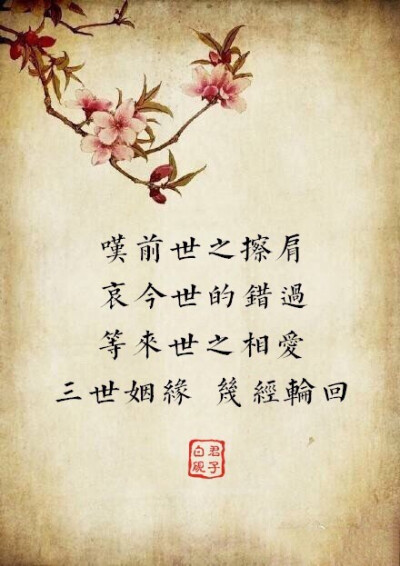 嘆前世之擦肩
哀今世的錯過
等來世之相愛
三世姻緣 幾經輪回
君子
白硯